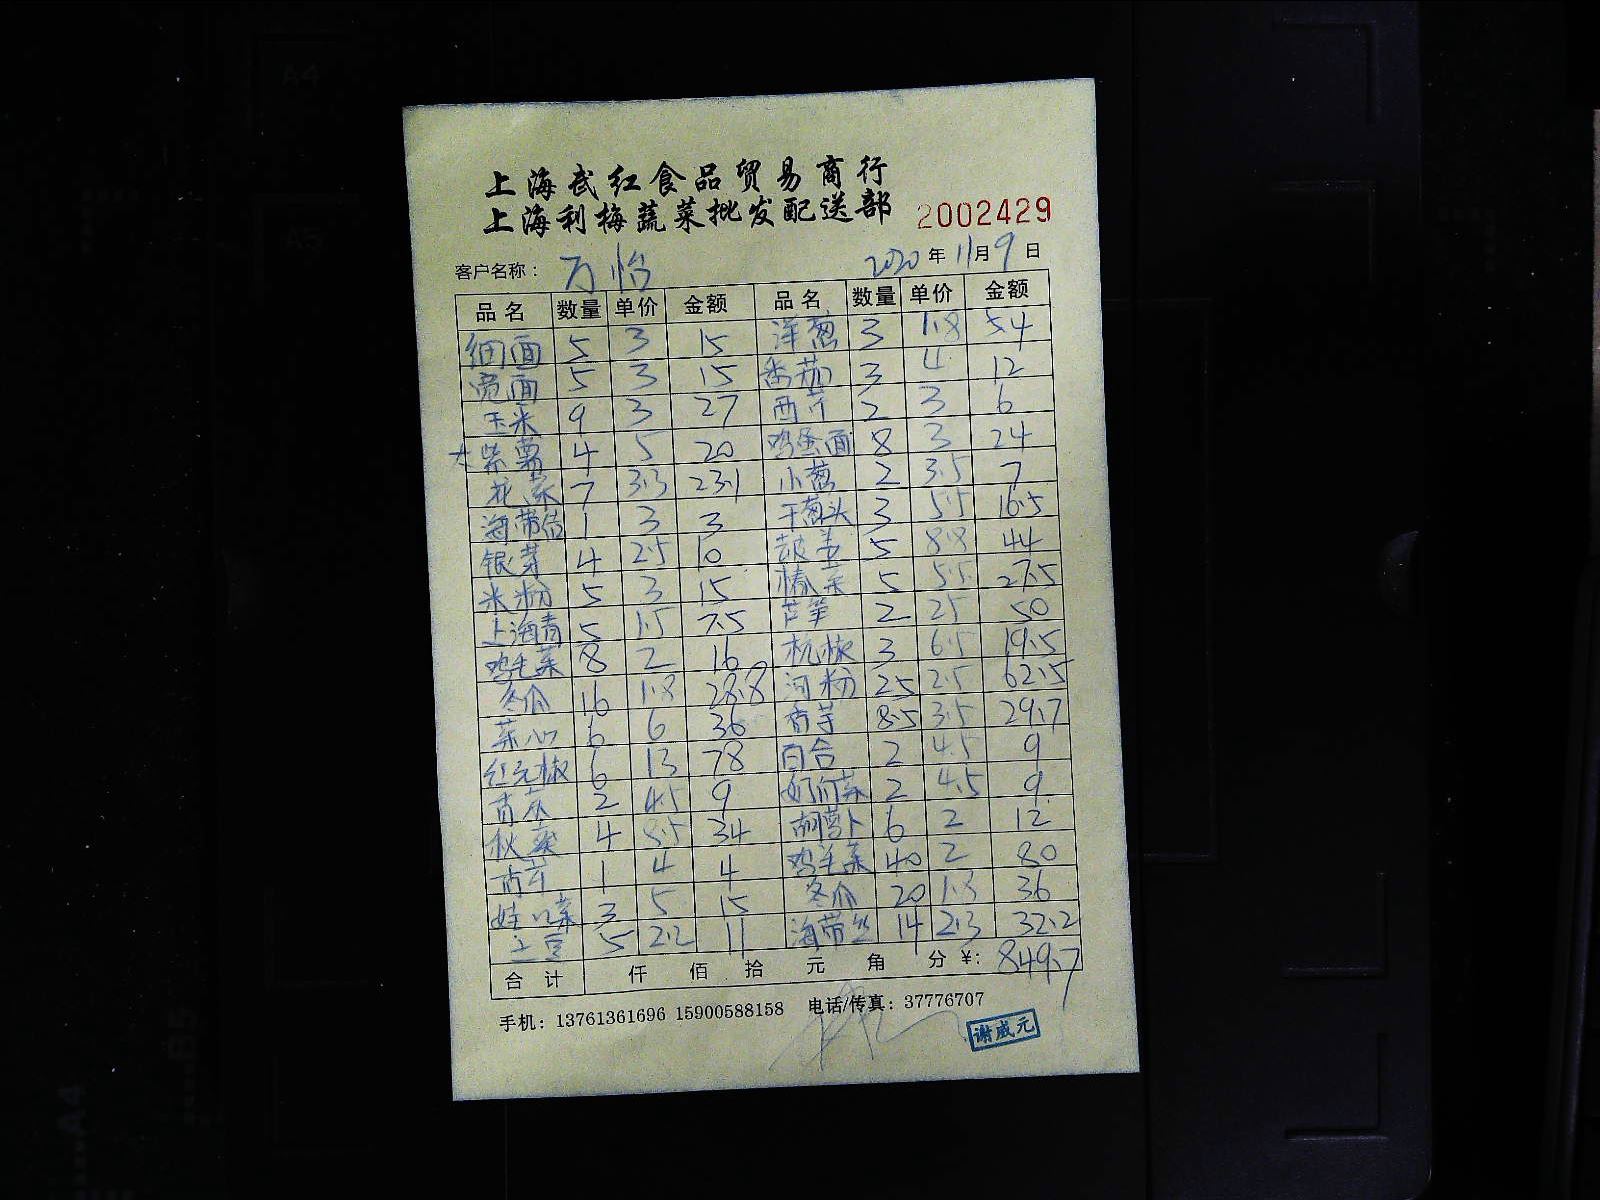 上海武红食品贸易商行
上海利梅蔬菜批发配送部 2002429
客户名称: 万怡 2020年11月9日
品名 数量 单价 金额 品名 数量 单价 金额
细面 5 3 15 洋葱 3 1.8 5.4
宽面 5 3 15 番茄 3 4 12
玉米 9 3 27 西芹 2 3 6
大紫薯 4 5 20 鸡蛋面 8 3 24
花菜 7 3.3 23.1 小葱 2 3.5 7
海带结 1 3 3 干葱头 3 5.5 16.5
银芽 4 2.5 10 老姜 5 8.8 44
米粉 5 3 15 5 5.5 27.5
上海青 5 1.5 7.5 芦笋 2 25 50
鸡毛菜 8 2 16 杭椒 3 6.5 19.5
冬瓜 16 1.8 28.8 河粉 25 2.5 62.5
菜心 6 6 36 香芋 8.5 3.5 29.7
红元椒 6 13 78 百合 2 4.5 9
2 4.5 9 奶白菜 2 4.5 9
秋葵 4 8.5 34 胡萝卜 6 2 12
香芹 1 4 4 鸡毛菜 40 2 80
娃娃菜 3 5 15 冬瓜 20 1.8 36
土豆 5 2.2 11 海带丝 14 2.3 32.2
合计 仟 佰 拾 元 角 分 ¥: 849.7
手机: 13761361696 15900588158 电话/传真: 37776707
谢成元